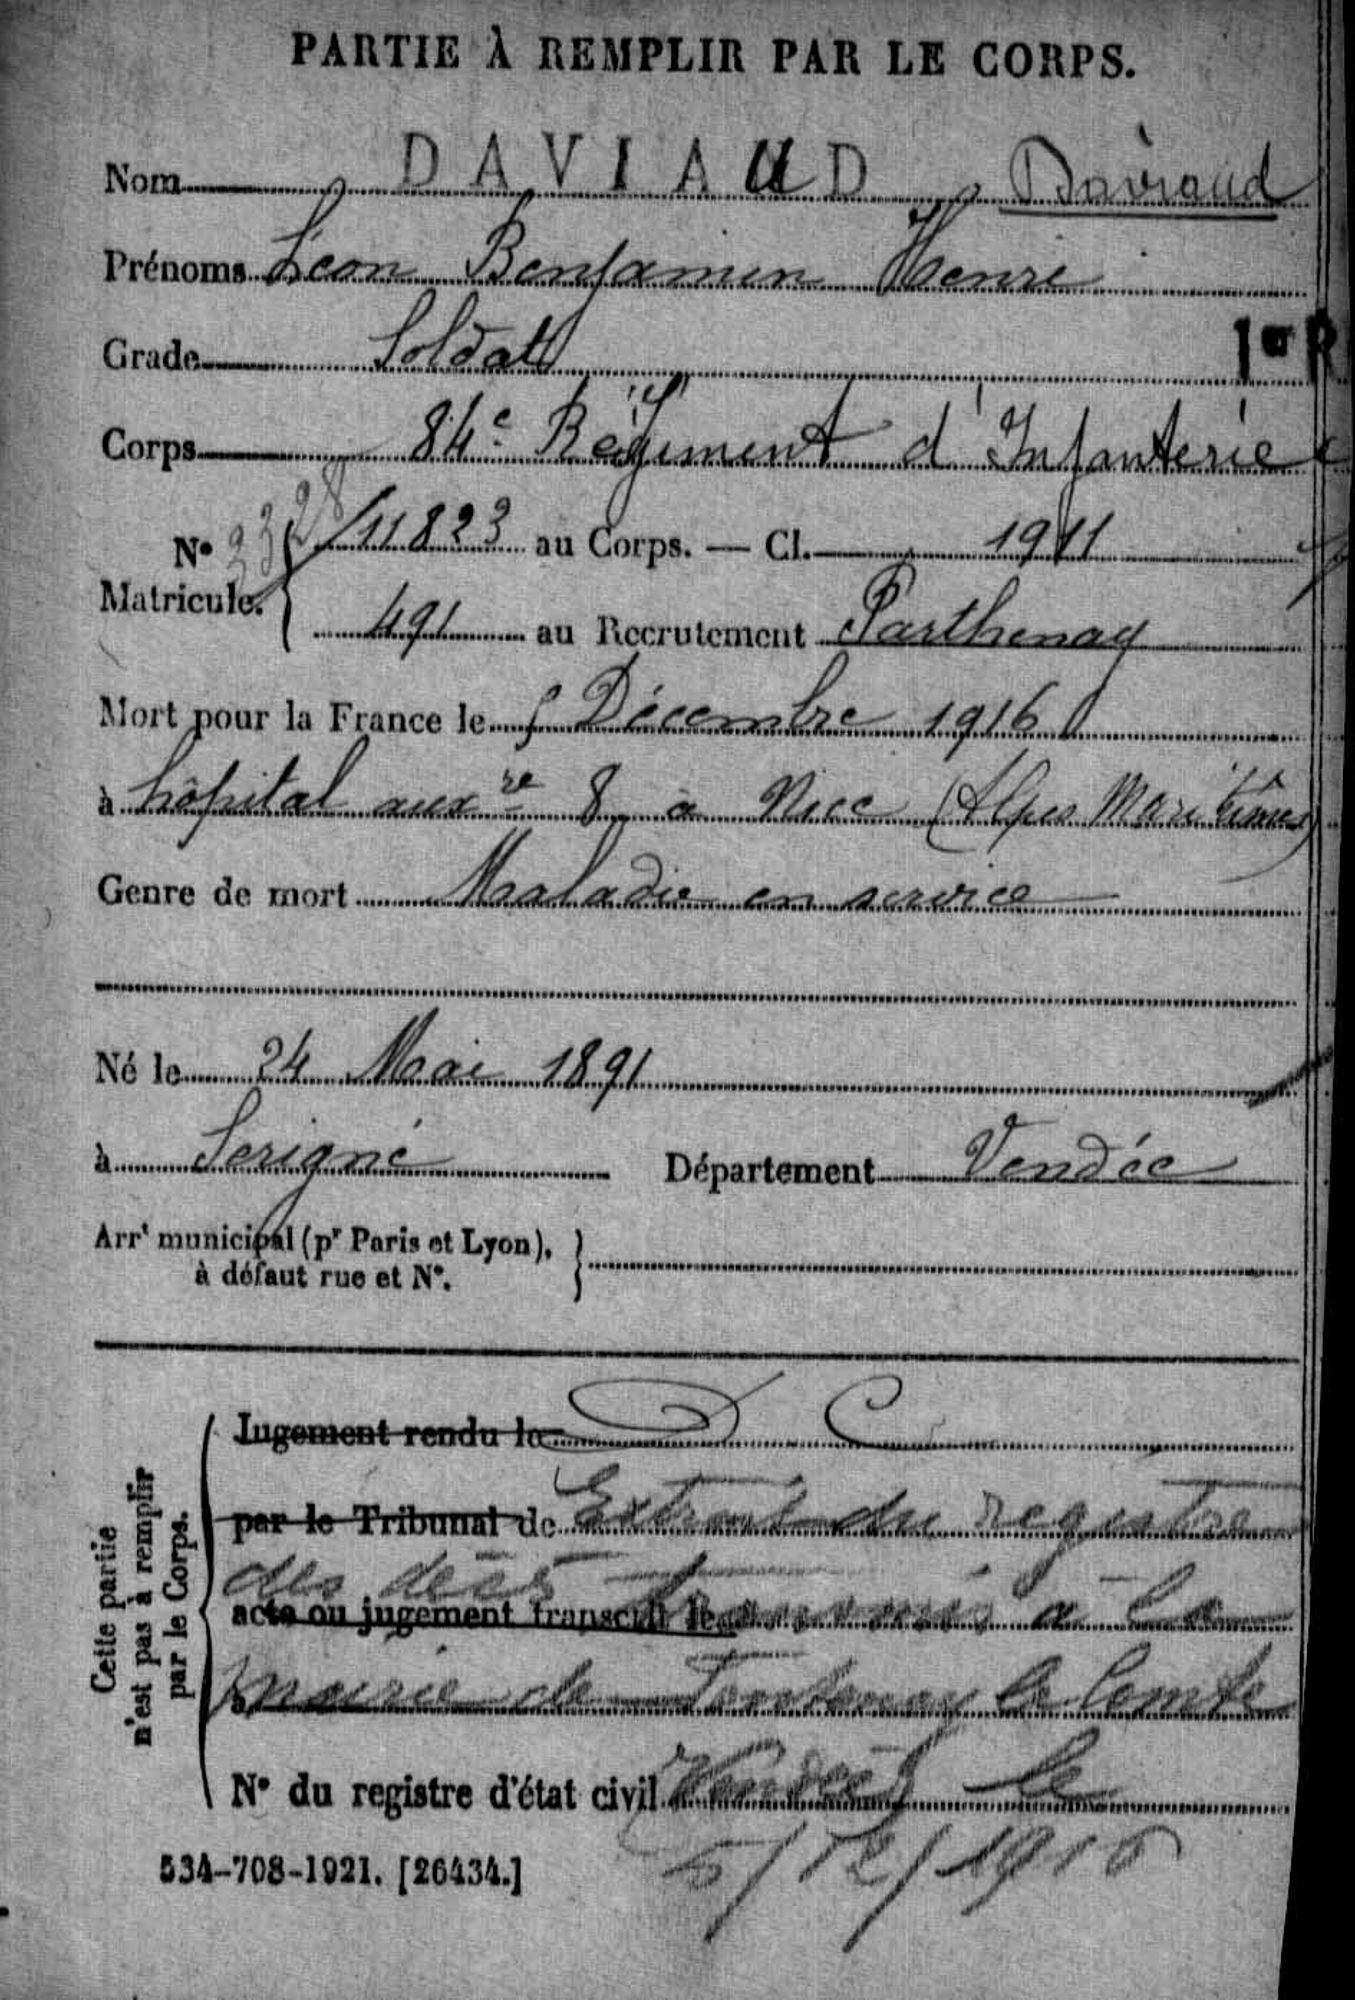 PARTIE À REMPLIR PAR LE CORPS.
Nom DAVIAUD Daviaud
Prénoms Léon Benjamin Henri
Grade Soldat
1er R
Corps 84e Régiment d'Infanterie
N° 2328 / 11823 au Corps. — Cl. 1911
Matricule. 491 au Recrutement Parthenay
Mort pour la France le 5 Décembre 1916
à hôpital auxre 8 à Nice (Alpes Maritimes)
Genre de mort Maladie en service
Né le 24 Mai 1891
à Serigné Département Vendée
Arrt municipal (pr Paris et Lyon),
à défaut rue et N°.
Cette partie
n'est pas à remplir
par le Corps.
Jugement rendu le D C
par le Tribunal de Extrait du registre
des décès
acte ou jugement transcrit le à la
mairie de Fontenay le Comte
N° du registre d'état civil (Vendée) le
5/12/1916
534-708-1921. [26434.]